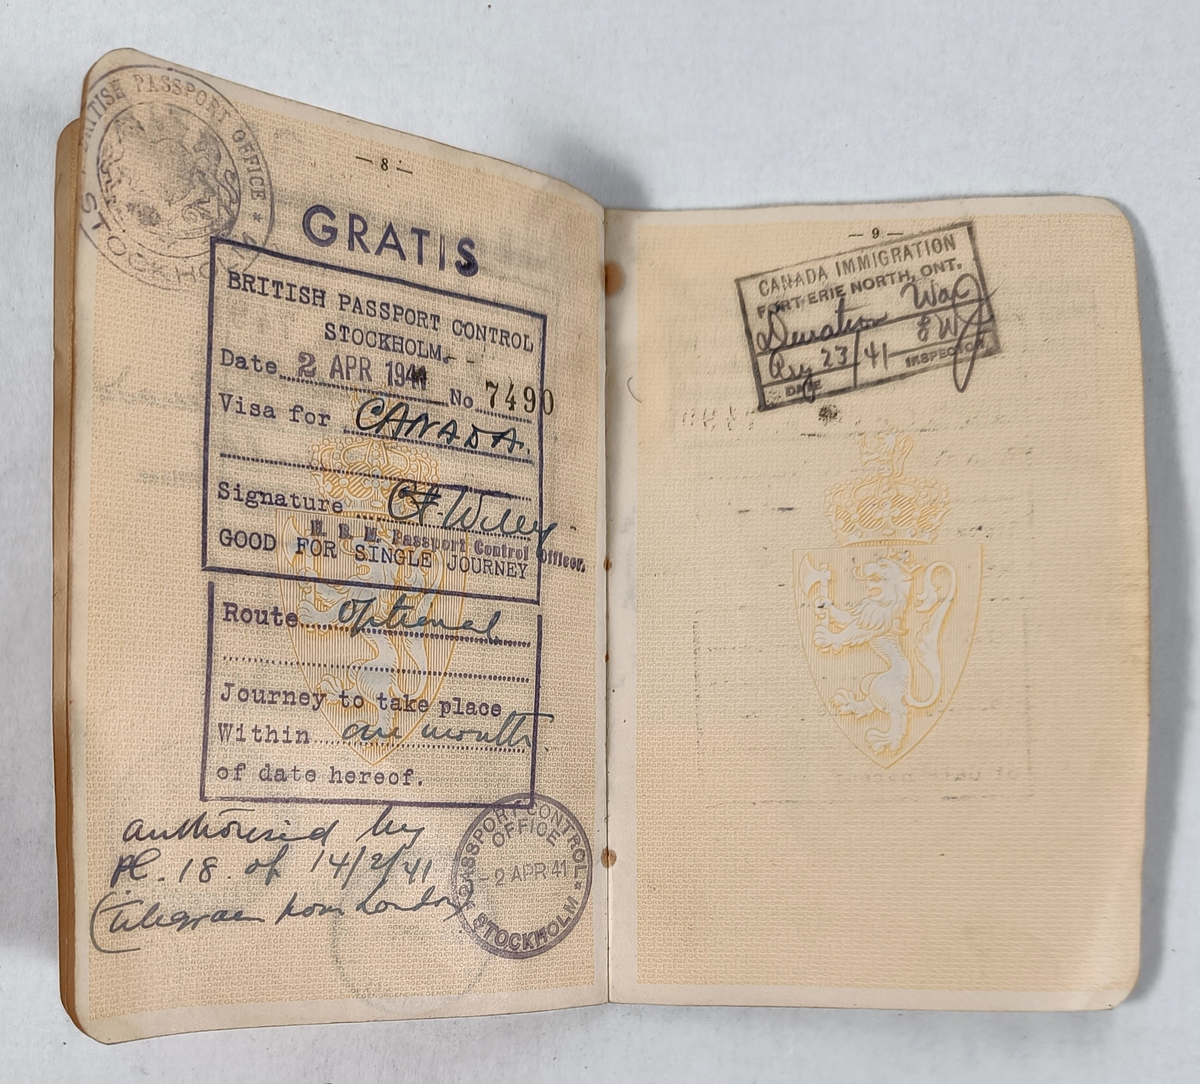 BRITISH PASSPORT OFFICE * STOCKHOLM
— 8 —
GRATIS
BRITISH PASSPORT CONTROL
STOCKHOLM.
Date 2 APR 1941 No 7490
Visa for CANADA.
Signature
H. B. M. Passport Control Officer.
GOOD FOR SINGLE JOURNEY
Route optional
Journey to take place
Within one month.
of date hereof.
authorised by
18 of 14/2/41
(telegram from London)
PASSPORT CONTROL
OFFICE
- 2 APR 41
* STOCKHOLM *
— 9 —
CANADA IMMIGRATION
FORT ERIE NORTH, ONT.
Duration War
23/41 INSPECTOR
DATE